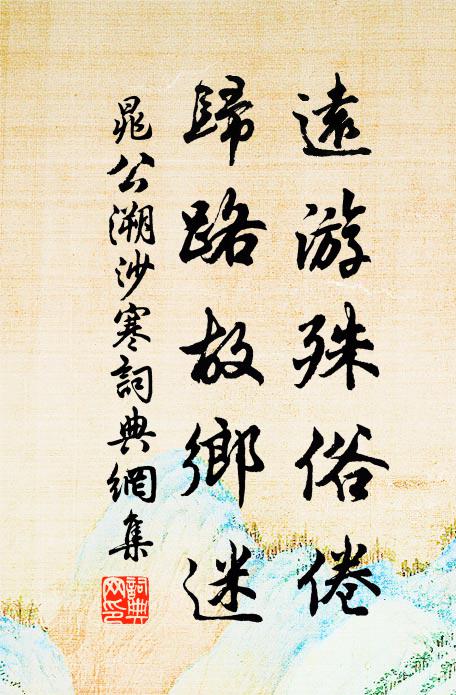 遠游殊俗倦
歸路故鄉迷
晁公溯沙寒詞典網集